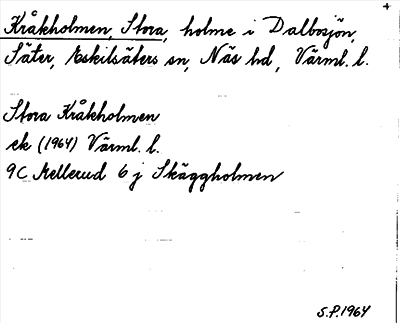 Kråkholmen, Stora, holme i Dalbosjön,
Säter, Eskilsäters sn, Näs hd, Värml. l.
Stora Kråkholmen
ek (1964) Värml. l.
9C Mellerud 6 j Skäggholmen
S.P. 1964